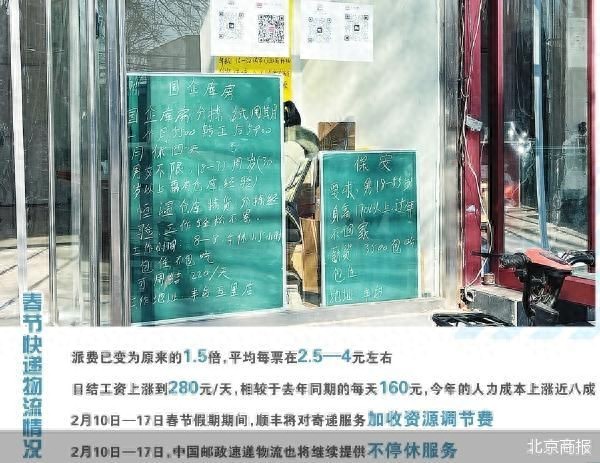 国企库房
国企库房分拣 试用期
工作日
月休四天
男女不限 (18-35周岁(30
岁以上需有仓库经验)
恒温仓库拣货 分拣经
验 工作轻松不累。
工作时间 8-8
包住不包吃
可周结 220/天
工作地址 丰台五里店
保安
要求:男18-
身高170以上 过年
不回家
薪资 3500包吃
包住
地址 丰台
春节快递物流情况
派费已变为原来的1.5倍,平均每票在2.5—4元左右
日结工资上涨到280元/天,相较于去年同期的每天160元,今年的人力成本上涨近八成
2月10日—17日春节假期期间,顺丰将对寄递服务加收资源调节费
2月10日—17日,中国邮政速递物流也将继续提供不停休服务
北京商报